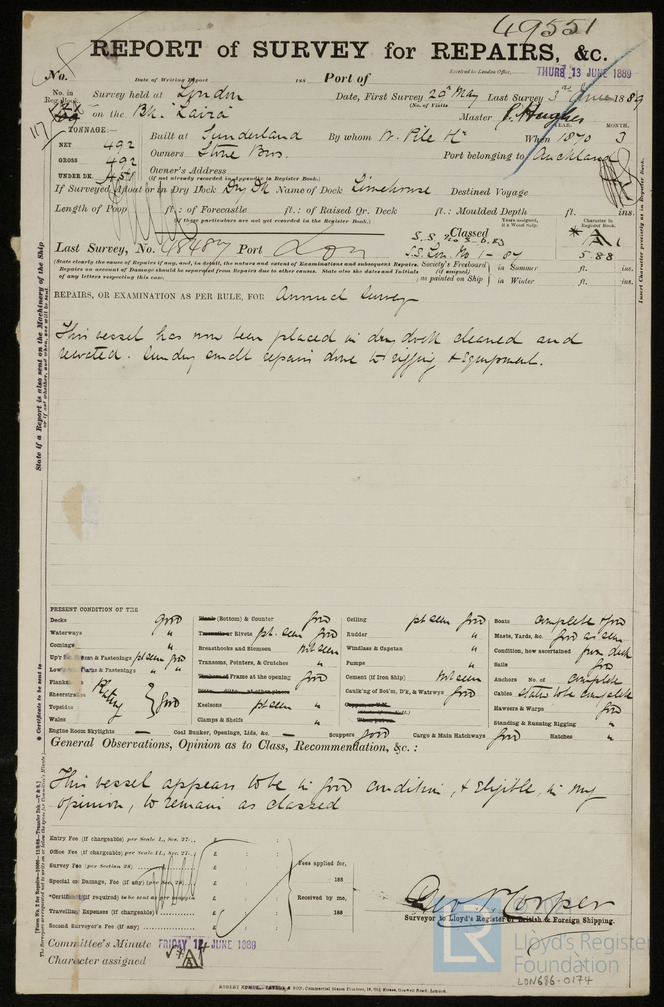 49551
REPORT of SURVEY for REPAIRS, &c.
No. Date of Writing Report 188 Port of Received in London Office, THURS 13 JUNE 1889
No. in Reg. Book. Survey held at London Date, First Survey 29th May Last Survey 3rd June 1889
(No. of Visits
117 on the Bk. "Laira" Master J. Hughes
TONNAGE:— YEAR. MONTH.
NET 492 Built at Sunderland By whom W. Pile When 1870 3
GROSS 492 Owners Stone Bros. Port belonging to Auckland
UNDER DK. 451 Owner's Address
(If not already recorded in Appendix to Register Book.)
If Surveyed Afloat or in Dry Dock Dry Dk Name of Dock Limehouse Destined Voyage
Length of Poop ft.: of Forecastle ft.: of Raised Qr. Deck ft.: Moulded Depth ft. ins.
(If these particulars are not yet recorded in the Register Book.)
Years assigned, if a Wood Ship. Character in Register Book.
Classed
Last Survey, No. 48487 Port Lon
S.S. No 3-6.83
S.S. Lon. No 1-87
A 1
5.88
(State clearly the cause of Repairs if any, and, in detail, the nature and extent of Examinations and subsequent Repairs.
Repairs on account of Damage should be separated from Repairs due to other causes. State also the dates and Initials
of any letters respecting this case.)
Society's Freeboard (if assigned) as painted on Ship
in Summer ft. ins.
in Winter ft. ins.
REPAIRS, OR EXAMINATION AS PER RULE, FOR Annual Survey
This vessel has now been placed in dry dock cleaned and
recoated. Sundry small repairs done to rigging & equipment.
State if a Report is also sent on the Machinery of the Ship
Insert Character precisely as in Register Book.
PRESENT CONDITION OF THE
Decks good
Waterways "
Comings "
Fastenings pt seen good
Fastenings " "
Planks
Sheerstrakes
Topsides
Wales
good
Engine Room Skylights —
(Bottom) & Counter good
Rivets pt. seen good
Breasthooks and Stemson not seen
Transoms, Pointers, & Crutches "
Frame at the opening good
Keelsons pt seen "
Clamps & Shelfs "
Coal Bunker, Openings, Lids, &c. —
Ceiling pt seen good
Rudder "
Windlass & Capstan "
Pumps "
Cement (if Iron Ship) not seen
Caulk'ng of Bot'm, D'k, & Watrwys good
Scuppers good
Cargo & Main Hatchways good
Boats complete & good
Masts, Yards, &c. good as seen
Condition, how ascertained from deck
Sails good
Anchors No. of complete
Cables stated to be complete
Hawsers & Warps good
Standing & Running Rigging "
Hatches "
General Observations, Opinion as to Class, Recommendation, &c.:
This vessel appears to be in good condition, & eligible, in my
opinion, to remain as classed
Entry Fee (if chargeable) per Scale I., Sec. 27.. £ : :
Office Fee (if chargeable) per Scale II., Sec. 27.. £ : :
Survey Fee (per Section 28) £ : :
Special or Damage, Fee (if any) (per Sec. 28) £ : :
Travelling Expenses (if chargeable) £ : :
Second Surveyor's Fee (if any) £ : :
Fees applied for,
188
Received by me,
188
Geo. Cooper
Surveyor to Lloyd's Register of British & Foreign Shipping.
Committee's Minute FRIDAY 14 JUNE 1889
Character assigned A
LR
Lloyd's Register
Foundation
LON686-0174